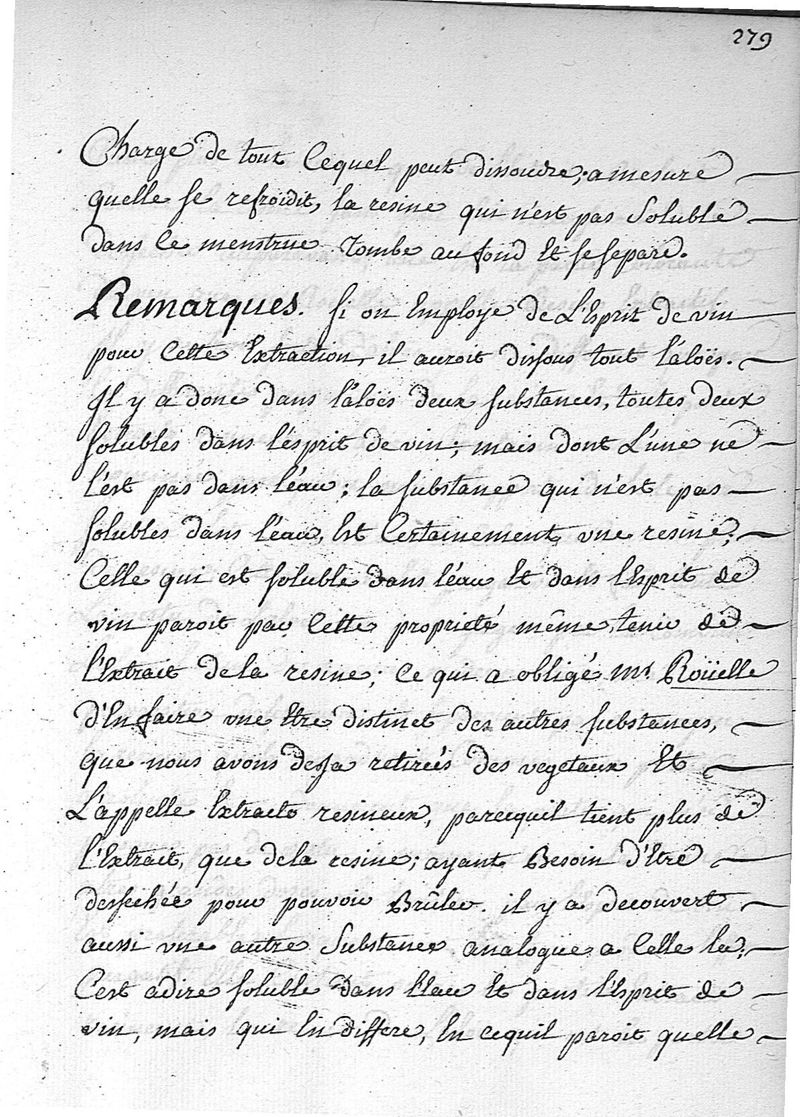 279
Charge de tout Cequel peut dissoudre, a mesure
quelle se refroidit, la resine qui n'est pas Soluble
dans Ce menstrue Tombe au fond Et se separe.
Remarques. Si on Employe de L'Esprit de vin
pour Cette Extraction, il auroit dissous tout l'aloës.
Il y a donc dans l'aloës deux substances, toutes deux
solubles dans l'esprit de vin; mais dont L'une ne
l'est pas dans l'eau; la substance qui n'est pas
solubles dans l'eau, Est Certainement une resine;
Celle qui est soluble dans l'eau Et dans l'Esprit de
vin paroit par Cette proprieté même, tenir de
l'Extrait de la resine; Ce qui a obligé mr. Roüelle
d'En faire une Etre distinct des autres substances,
que nous avons desja retirées des vegetaux Et
L'appelle Extracto resineux, parcequil tient plus de
l'Extrait, que dela resine; ayant Besoin d'Etre
dessechée pour pouvoir Brûler. il y a decouvert
aussi une autre Substance analogue a Celle la,
C'est adire soluble dans l'eau Et dans l'Esprit de
vin, mais qui En differe, En cequil paroit quelle